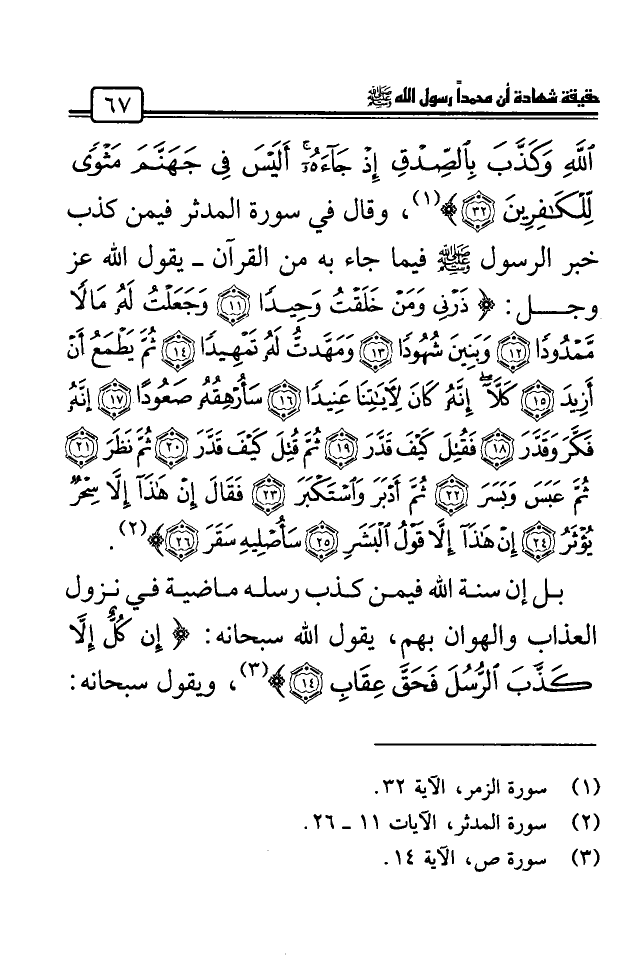 حقيقة شهادة أن محمداً رسول الله ﷺ
٦٧
ٱللَّهِ وَكَذَّبَ بِٱلصِّدْقِ إِذْ جَآءَهُۥٓ أَلَيْسَ فِى جَهَنَّمَ مَثْوًى
لِّلْكَٰفِرِينَ ٣٢﴾(١)، وقال في سورة المدثر فيمن كذب
خبر الرسول ﷺ فيما جاء به من القرآن ـ يقول الله عز
وجل: ﴿ ذَرْنِى وَمَنْ خَلَقْتُ وَحِيدًا ١١ وَجَعَلْتُ لَهُۥ مَالًا
مَّمْدُودًا ١٢ وَبَنِينَ شُهُودًا ١٣ وَمَهَّدتُّ لَهُۥ تَمْهِيدًا ١٤ ثُمَّ يَطْمَعُ أَنْ
أَزِيدَ ١٥ كَلَّآ ۖ إِنَّهُۥ كَانَ لِءَايَٰتِنَا عَنِيدًا ١٦ سَأُرْهِقُهُۥ صَعُودًا ١٧ إِنَّهُۥ
فَكَّرَ وَقَدَّرَ ١٨ فَقُتِلَ كَيْفَ قَدَّرَ ١٩ ثُمَّ قُتِلَ كَيْفَ قَدَّرَ ٢٠ ثُمَّ نَظَرَ ٢١
ثُمَّ عَبَسَ وَبَسَرَ ٢٢ ثُمَّ أَدْبَرَ وَٱسْتَكْبَرَ ٢٣ فَقَالَ إِنْ هَٰذَآ إِلَّا سِحْرٌ
يُؤْثَرُ ٢٤ إِنْ هَٰذَآ إِلَّا قَوْلُ ٱلْبَشَرِ ٢٥ سَأُصْلِيهِ سَقَرَ ٢٦﴾(٢).
بل إن سنة الله فيمن كذب رسله ماضية في نزول
العذاب والهوان بهم، يقول الله سبحانه: ﴿ إِن كُلٌّ إِلَّا
كَذَّبَ ٱلرُّسُلَ فَحَقَّ عِقَابِ ١٤﴾(٣)، ويقول سبحانه:
(١) سورة الزمر، الآية ٣٢.
(٢) سورة المدثر، الآيات ١١ ـ ٢٦.
(٣) سورة ص، الآية ١٤.